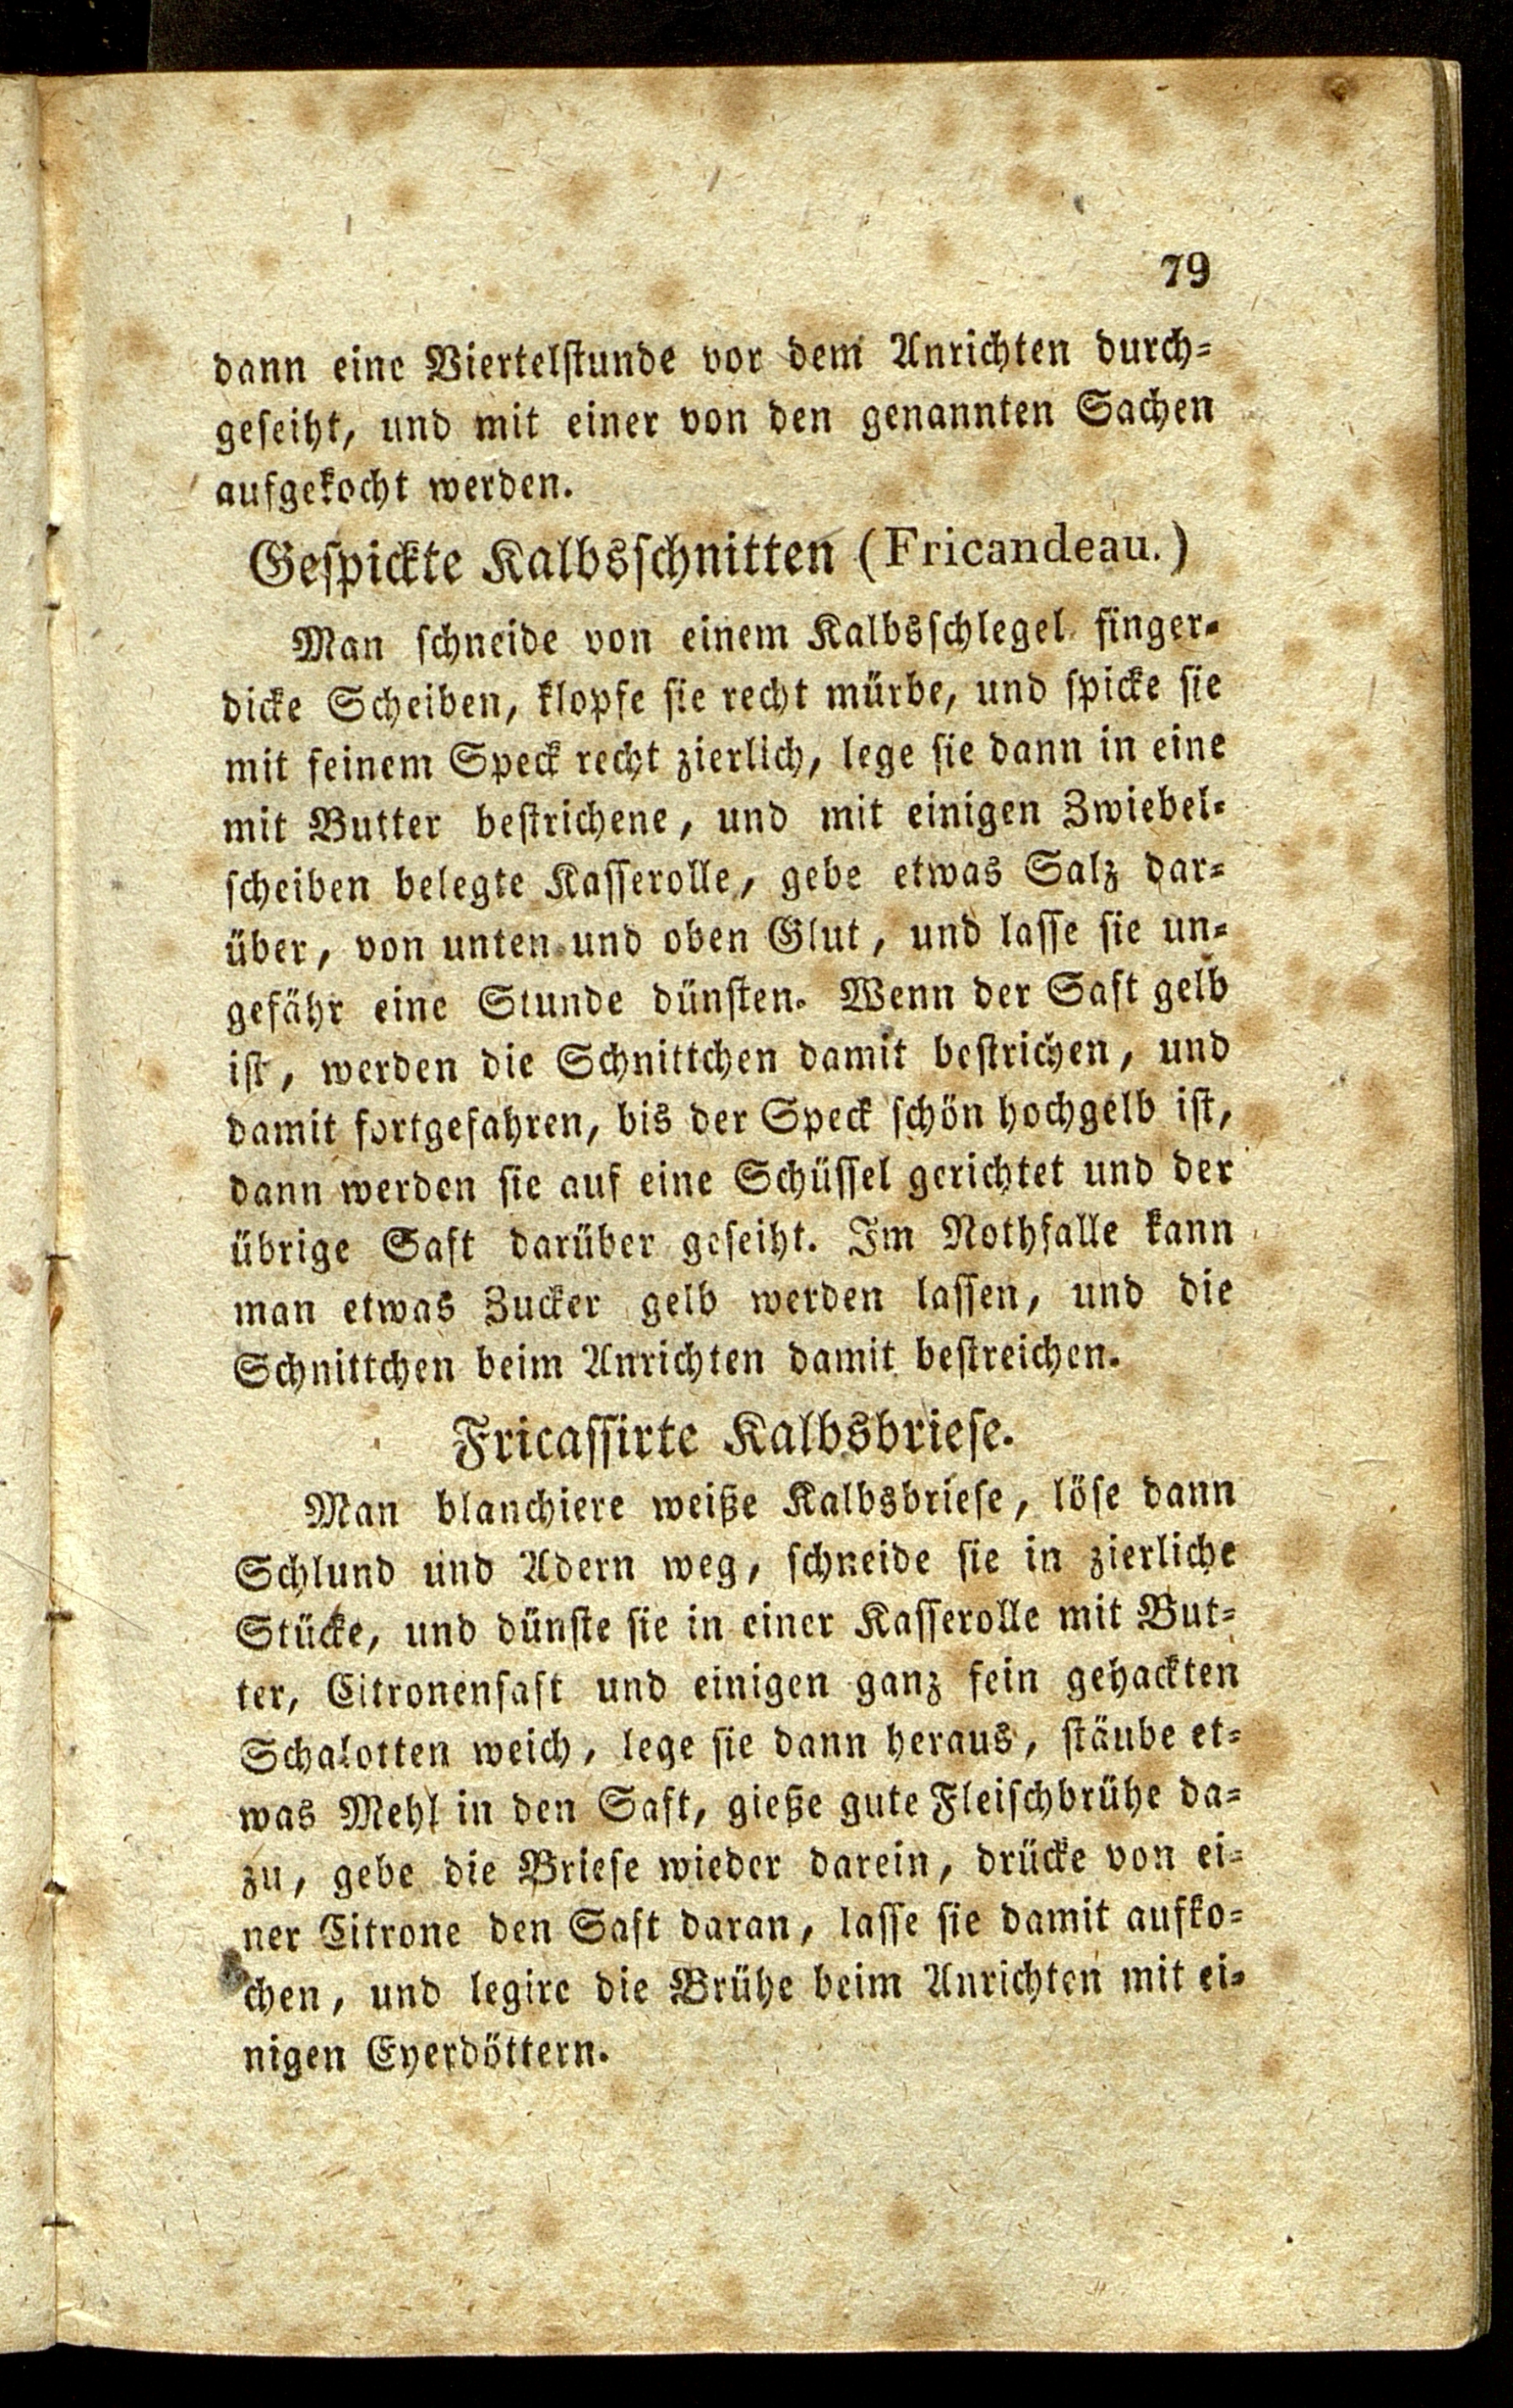 79
dann eine Viertelstunde vor dem Anrichten durch=
geseiht, und mit einer von den genannten Sachen
aufgekocht werden.
Gespickte Kalbsschnitten (Fricandeau.)
Man schneide von einem Kalbsschlegel finger=
dicke Scheiben, klopfe sie recht mürbe, und spicke sie
mit feinem Speck recht zierlich, lege sie dann in eine
mit Butter bestrichene, und mit einigen Zwiebel=
scheiben belegte Kasserolle, gebe etwas Salz dar=
über, von unten und oben Glut, und lasse sie un=
gefähr eine Stunde dünsten. Wenn der Saft gelb
ist, werden die Schnittchen damit bestrichen, und
damit fortgefahren, bis der Speck schön hochgelb ist,
dann werden sie auf eine Schüssel gerichtet und der
übrige Saft darüber geseiht. Im Nothfalle kann
man etwas Zucker gelb werden lassen, und die
Schnittchen beim Anrichten damit bestreichen.
Fricassirte Kalbsbriese.
Man blanchiere weiße Kalbsbriese, löse dann
Schlund und Adern weg, schneide sie in zierliche
Stücke, und dünste sie in einer Kasserolle mit But=
ter, Citronensaft und einigen ganz fein gehackten
Schalotten weich, lege sie dann heraus, stäube et=
was Mehl in den Saft, gieße gute Fleischbrühe da=
zu, gebe die Briese wieder darein, drücke von ei=
ner Citrone den Saft daran, lasse sie damit aufko=
chen, und legire die Brühe beim Anrichten mit ei=
nigen Eyerdöttern.